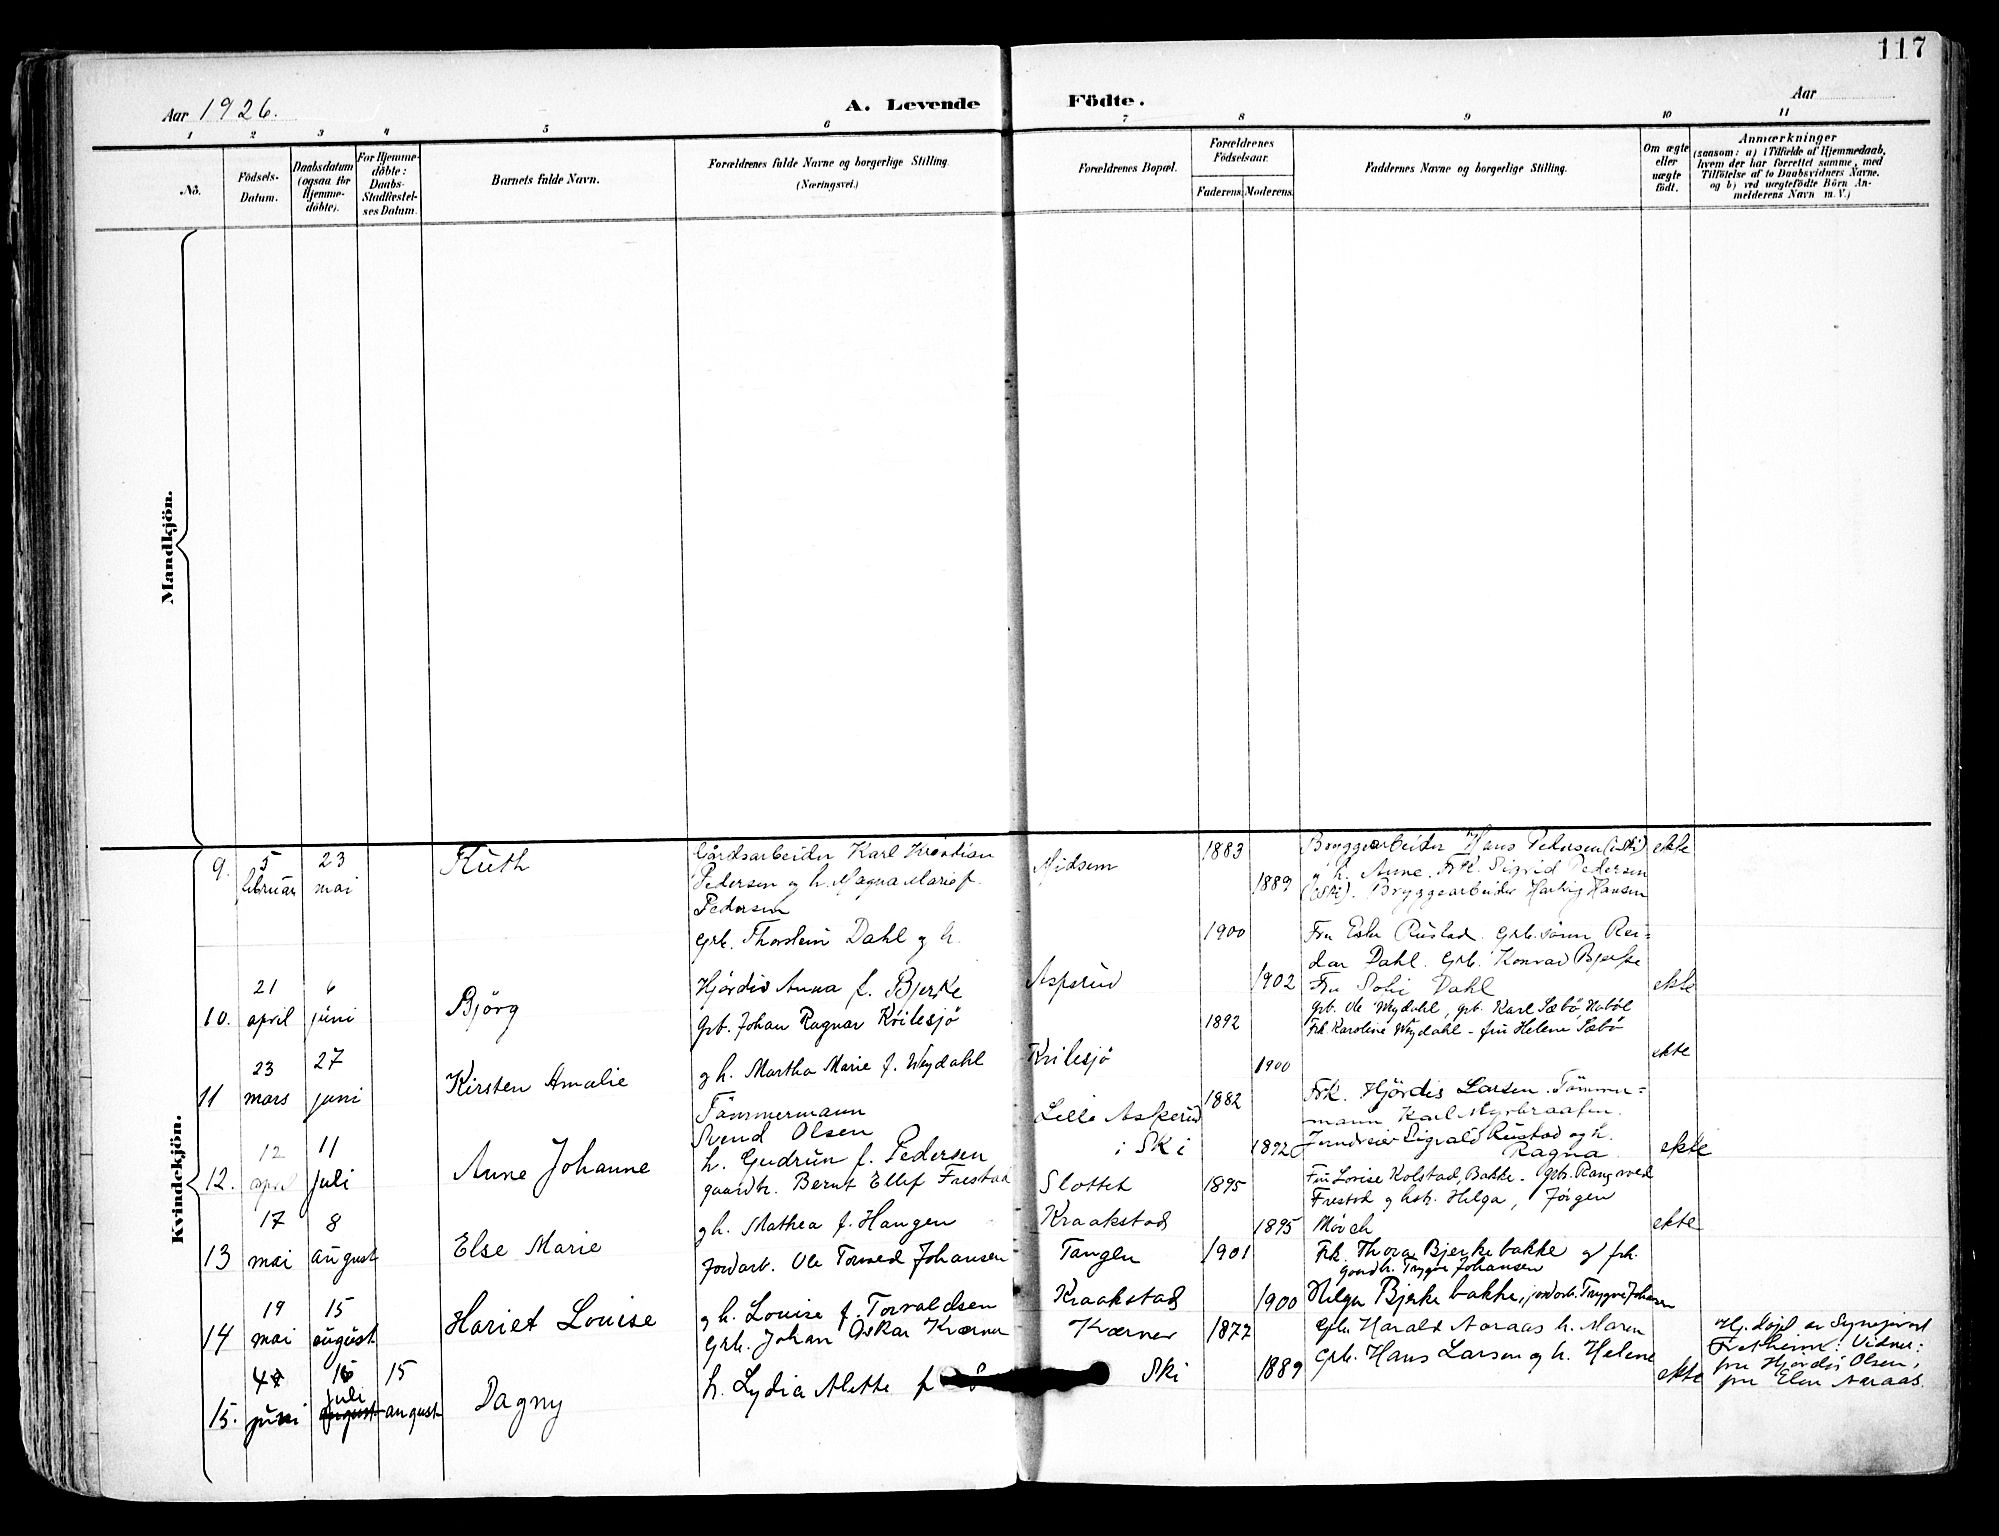 117
Aar 1926.
A. Levende Födte.
Aar
1 2 3 4 5 6 7 8 9 10 11
No.
Födsels-
Datum.
Daabsdatum
(ogsaa for
Hjemme-
döbte).
For Hjemme-
döbte:
Daabs-
Stadfæstel-
ses Datum.
Barnets fulde Navn.
Forældrenes fulde Navne og borgerlige Stilling
(Næringsvei.)
Forældrenes Bopæl.
Forældrenes
Födselsaar.
Faderens. Moderens.
Faddernes Navne og borgerlige Stilling.
Om ægte
eller
uægte
födt.
Anmærkninger
(saasom: a) i Tilfælde af Hjemmedaab,
hvem der har forrettet samme, med
Tilföielse af to Daabsvidners Navne.
og b) ved uægtefödte Börn An-
melderens Navn m. V.)
Mandkjön.
Kvindekjön.
9. 5 februar
23 mai
Ruth
Gårdsarbeider Karl
Pedersen og h. Magna Marie f.
Pedersen
Midsem
1883
1889
Bryggearbeider Hans Pedersen (i Ski)
o h. Anne. Frk. Sigrid Pedersen
(Ski). Bryggearbeider Hartvig Hansen
ekte
10. 21 april
6 juni
Björg
Grb. Thorstein Dahl og h.
Hjördis Anna f. Bjerke
Asperud
1900
1902
Fru Ester Rustad. Grb. sönn Rei-
dar Dahl. Grb. Konrad Bjerke
Fru Solvi Dahl
ekte
11 23 mars
27 juni
Kirsten Amalie
Grb. Johan Ragnar Kvilesjö
og h. Martha Marie f. Wegdahl
Kvilesjö
1892
1900
Grb. Ole Wegdahl, grb. Karl Sæbö, Hoböl
Frk Karoline Wegdahl - fru Helene Sæbö
ekte
12. 12 april
11 juli
Anne Johanne
Tömmermann
Svend Olsen
h. Gudrun f. Pedersen
Lille Asperud
i Ski
1882
1892
Frk. Hjördis Larsen. Tömmer-
mann Karl Myrbraaten.
Sigvald Rustad og h.
Ragna
ekte
13 17 mai
8 august
Else Marie
gaardbr. Bernt Ellef Frestad
og h. Mathea f. Haugen
Slottet
Kraakstad
1895
1895
Fru Lovise Kolstad, Bakke. Grb.
Frestad og hstr. Helga, Jörgen
Mörch
ekte
14 19 mai
15 august
Hariet Louise
Jordarb. Ole Tormod Johansen
og h. Louise f. Torvaldsen
Tangen
Kraakstad
1901
1900
Frk. Thora Bjerkebakke og frk.
gaardbr. Trygve Johansen
Helga Bjerkebakke, jordarb. Trygve Johansen
15. 4 juni
15 juli
august
15 august
Dagny
Grb. Johan Oskar Kværner
h. Lydia Alette f.
Kværner
Ski
1877
1889
Grb. Harald Aaraas h. Maren
Grb. Hans Larsen og h. Helene
ekte
Hj. döpt av
Fretheim: Vidner:
fru Hjördis Olsen,
fru Elen Aaraas.